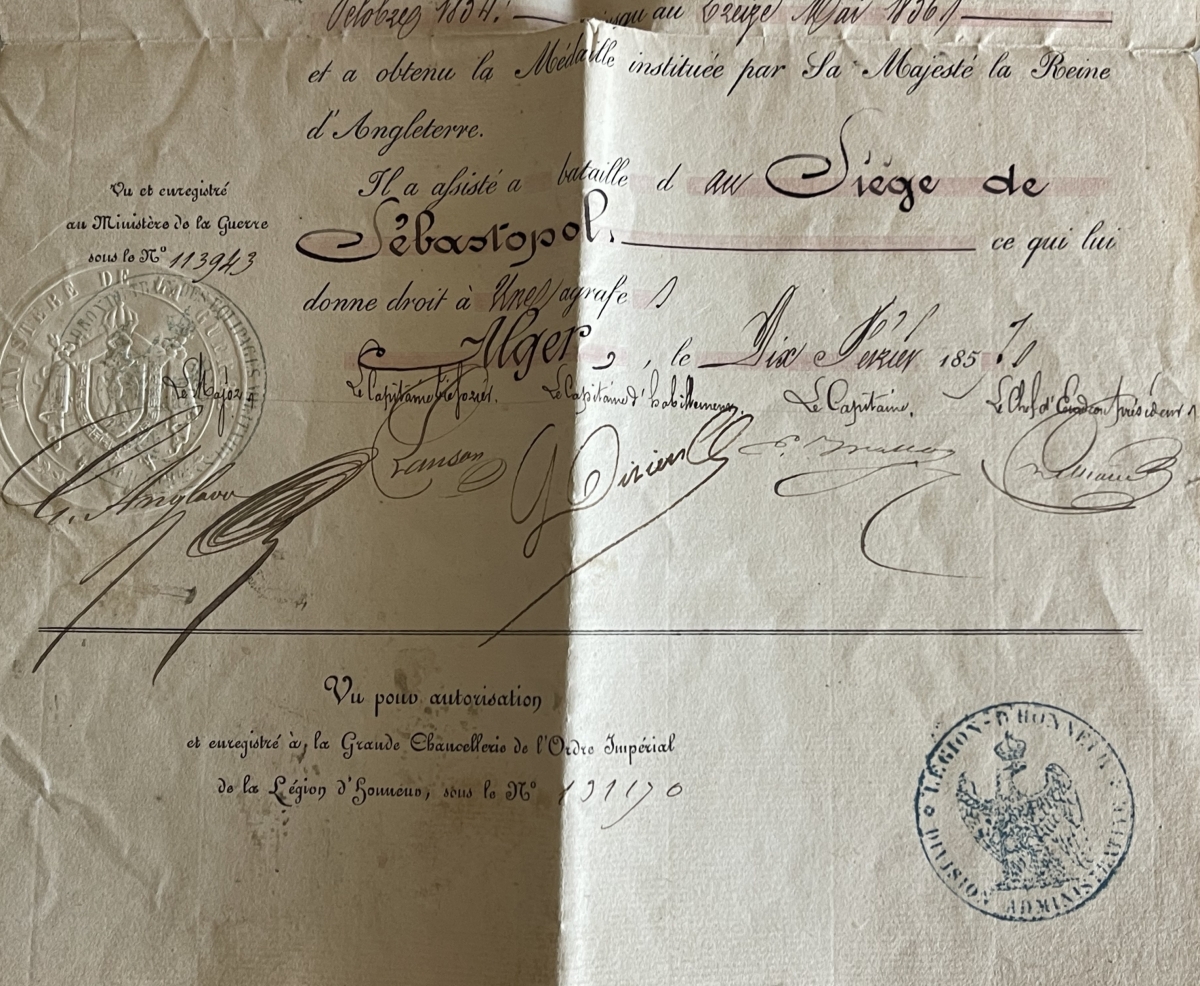 Octobre 1854. jusqu'au treize Mai 1856
et a obtenu la Médaille instituée par Sa Majesté la Reine
d'Angleterre.
Il a assisté a bataille d au Siège de
Sébastopol. ce qui lui
donne droit à Une agrafe
Alger, le Dix Février 1857
Vu et enregistré
au Ministère de la Guerre
sous le N° 113943
MINISTÈRE DE LA GUERRE
Le Major
Le Capitaine Trésorier.
Le Capitaine d'habillement.
Le Capitaine.
Le Chef d'Escadron Président
Vu pour autorisation
et enregistré à la Grande Chancellerie de l'Ordre Impérial
de la Légion d'Honneur, sous le N° 131170
LÉGION-D'HONNEUR
DIVISION ADMINISTRATIVE